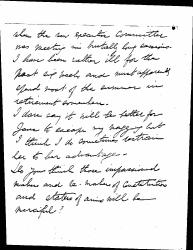 when the new executive committee
was meeting in
I have been rather ill for the
past six weeks and must apparently
spend most of the summer in
retirement somewhere.
I dare say it will be better for
Jane to escape my nagging but
I think I do sometimes restrain
her to her advantage.
Do you think those impassioned
makers and re-makers of Constitution
and states of aims will be
merciful?